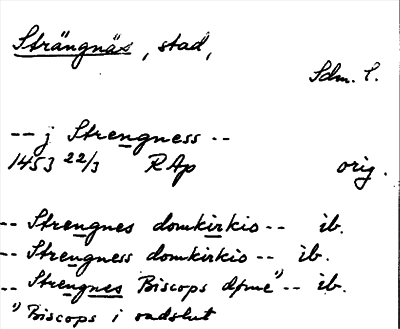 Strängnäs, stad,
Sdm. l.
-- j Strengness --
1453 22/3 RAp orig.
-- Strengnes domkirkio -- ib.
-- Strengness domkirkio -- ib.
-- Strengnes Biscops døme¹⁾ -- ib.
¹⁾ Biscops i radslut